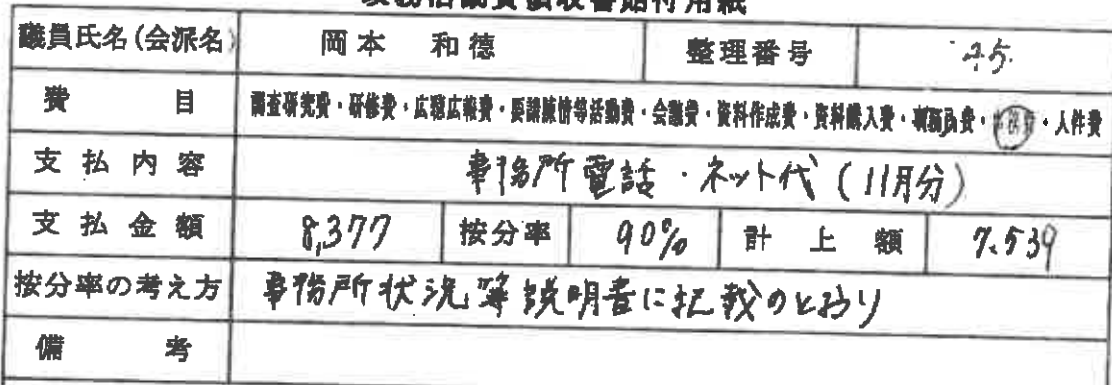 政務活動費領収書貼付用紙
議員氏名(会派名) 岡本 和徳 整理番号 25
費目 調査研究費・研修費・広聴広報費・要請陳情等活動費・会議費・資料作成費・資料購入費・事務費・人件費
支払内容 事務所電話・ネット代(11月分)
支払金額 8,377 按分率 90% 計上額 7.539
按分率の考え方 事務所状況等説明書に記載のとおり
備考